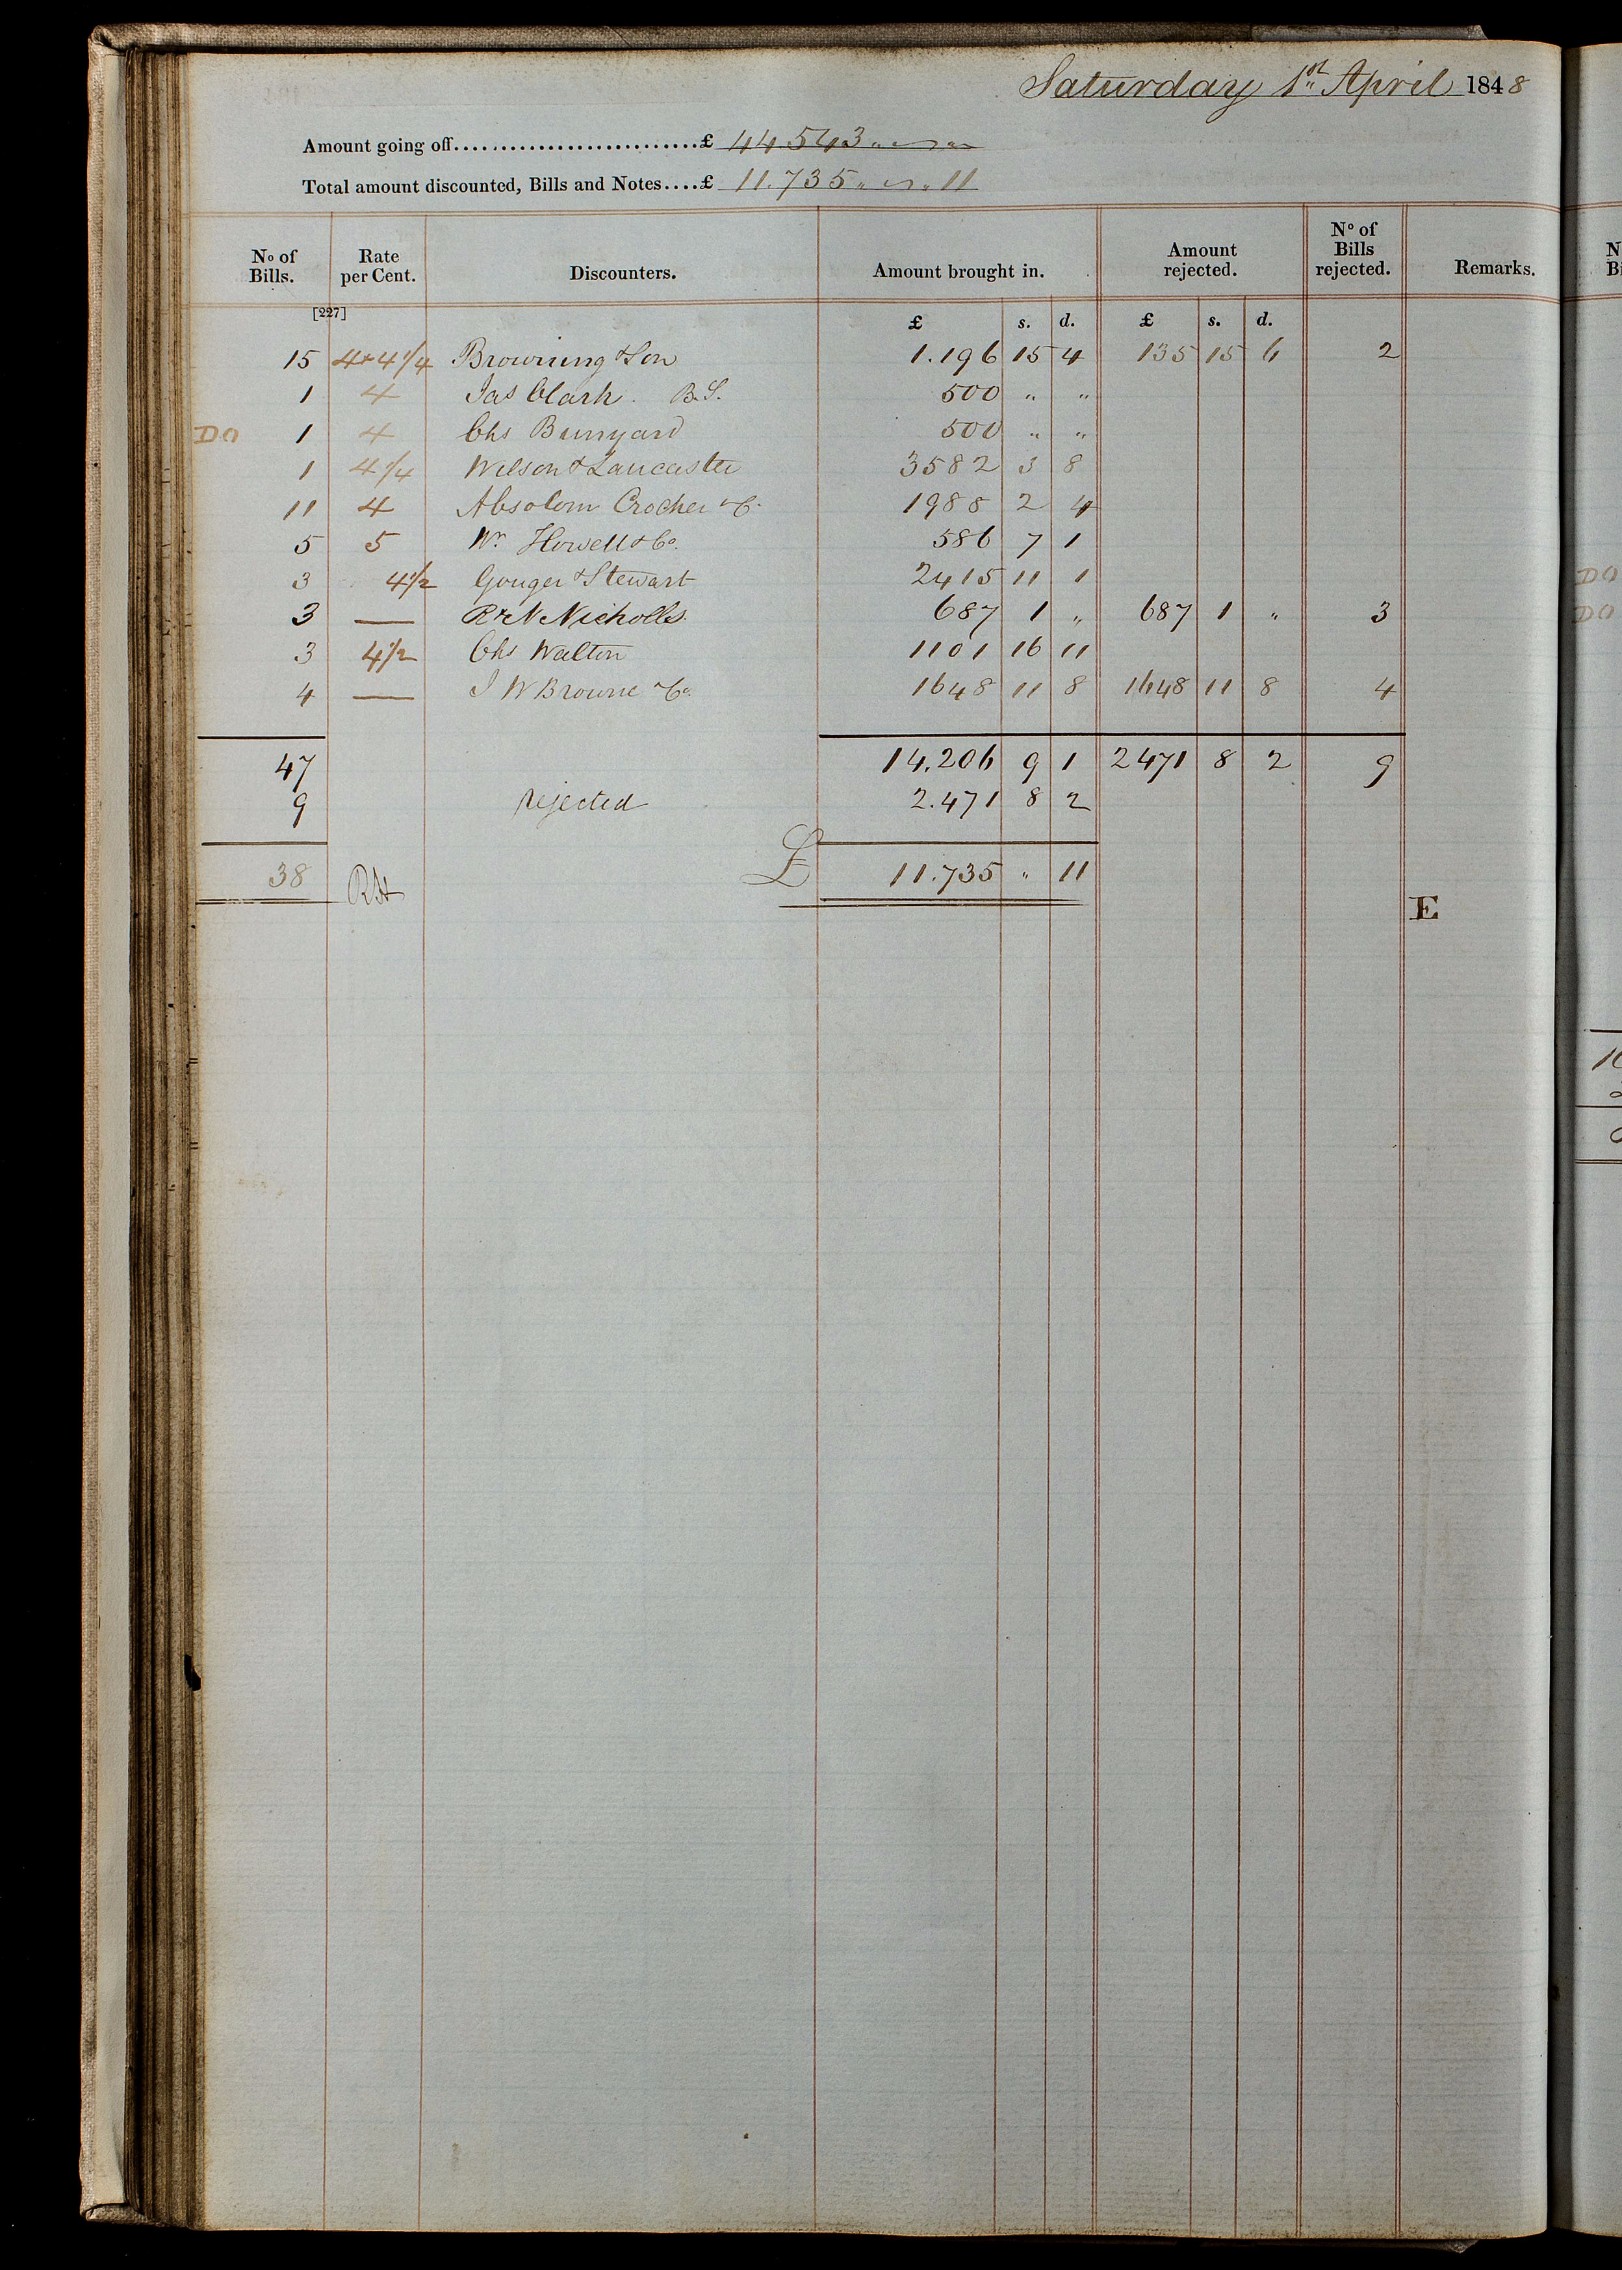 Saturday 1st April 1848
Amount going off..........................£ 44543 " — "
Total amount discounted, Bills and Notes....£ 11.735 " — " 11
No of Bills. Rate per Cent. Discounters. Amount brought in. Amount rejected. No of Bills rejected. Remarks.
[227]
£ s. d. £ s. d.
15 4 & 4 1/4 Browning & Son 1.196 15 4 135 15 6 2
1 4 Jas Clark. B.S. 500 " "
DO 1 4 Chs Bunyard 500 " "
1 4 1/4 Wilson & Lancaster 3582 3 8
11 4 Absolom Crocker & Co. 1988 2 4
5 5 Wm Howell & Co. 586 7 1
3 4 1/2 Gouger & Stewart 2415 11 1
3 — R & N Nicholls. 687 1 " 687 1 " 3
3 4 1/2 Chs Walton 1101 16 11
4 — J W Browne & Co. 1648 11 8 1648 11 8 4
47 14.206 9 1 2471 8 2 9
9 rejected 2.471 8 2
38 £ 11.735 " 11
E
DO
DO